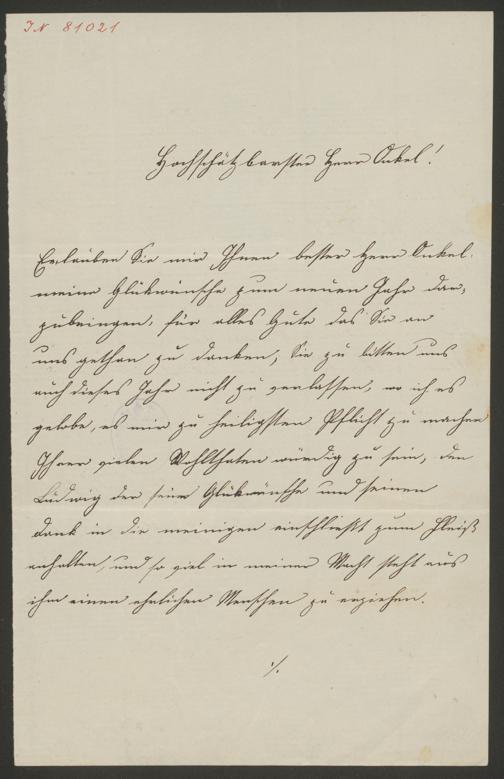 IN 81021
Hochschätzbarster Herr Onkel!
Erlauben Sie mir Ihnen bester Herr Onkel.
meine Glükwünsche zum neuen Jahr dar,
zubringen, für alles Gute das Sie an
uns gethan zu danken, Sie zu bitten uns
auch dieses Jahr nicht zu verlassen, wo ich es
gelobe, es mir zu heiligsten Pflicht zu machen
Ihrer vielen Wohlthaten würdig zu sein, den
Ludwig der seine Glükwünsche und seinen
Dank in die meinigen einschließt zum Fleiß
anhalten, und so viel in meiner Macht steht aus
ihm einen ehrlichen Menschen zu erziehen.
./.